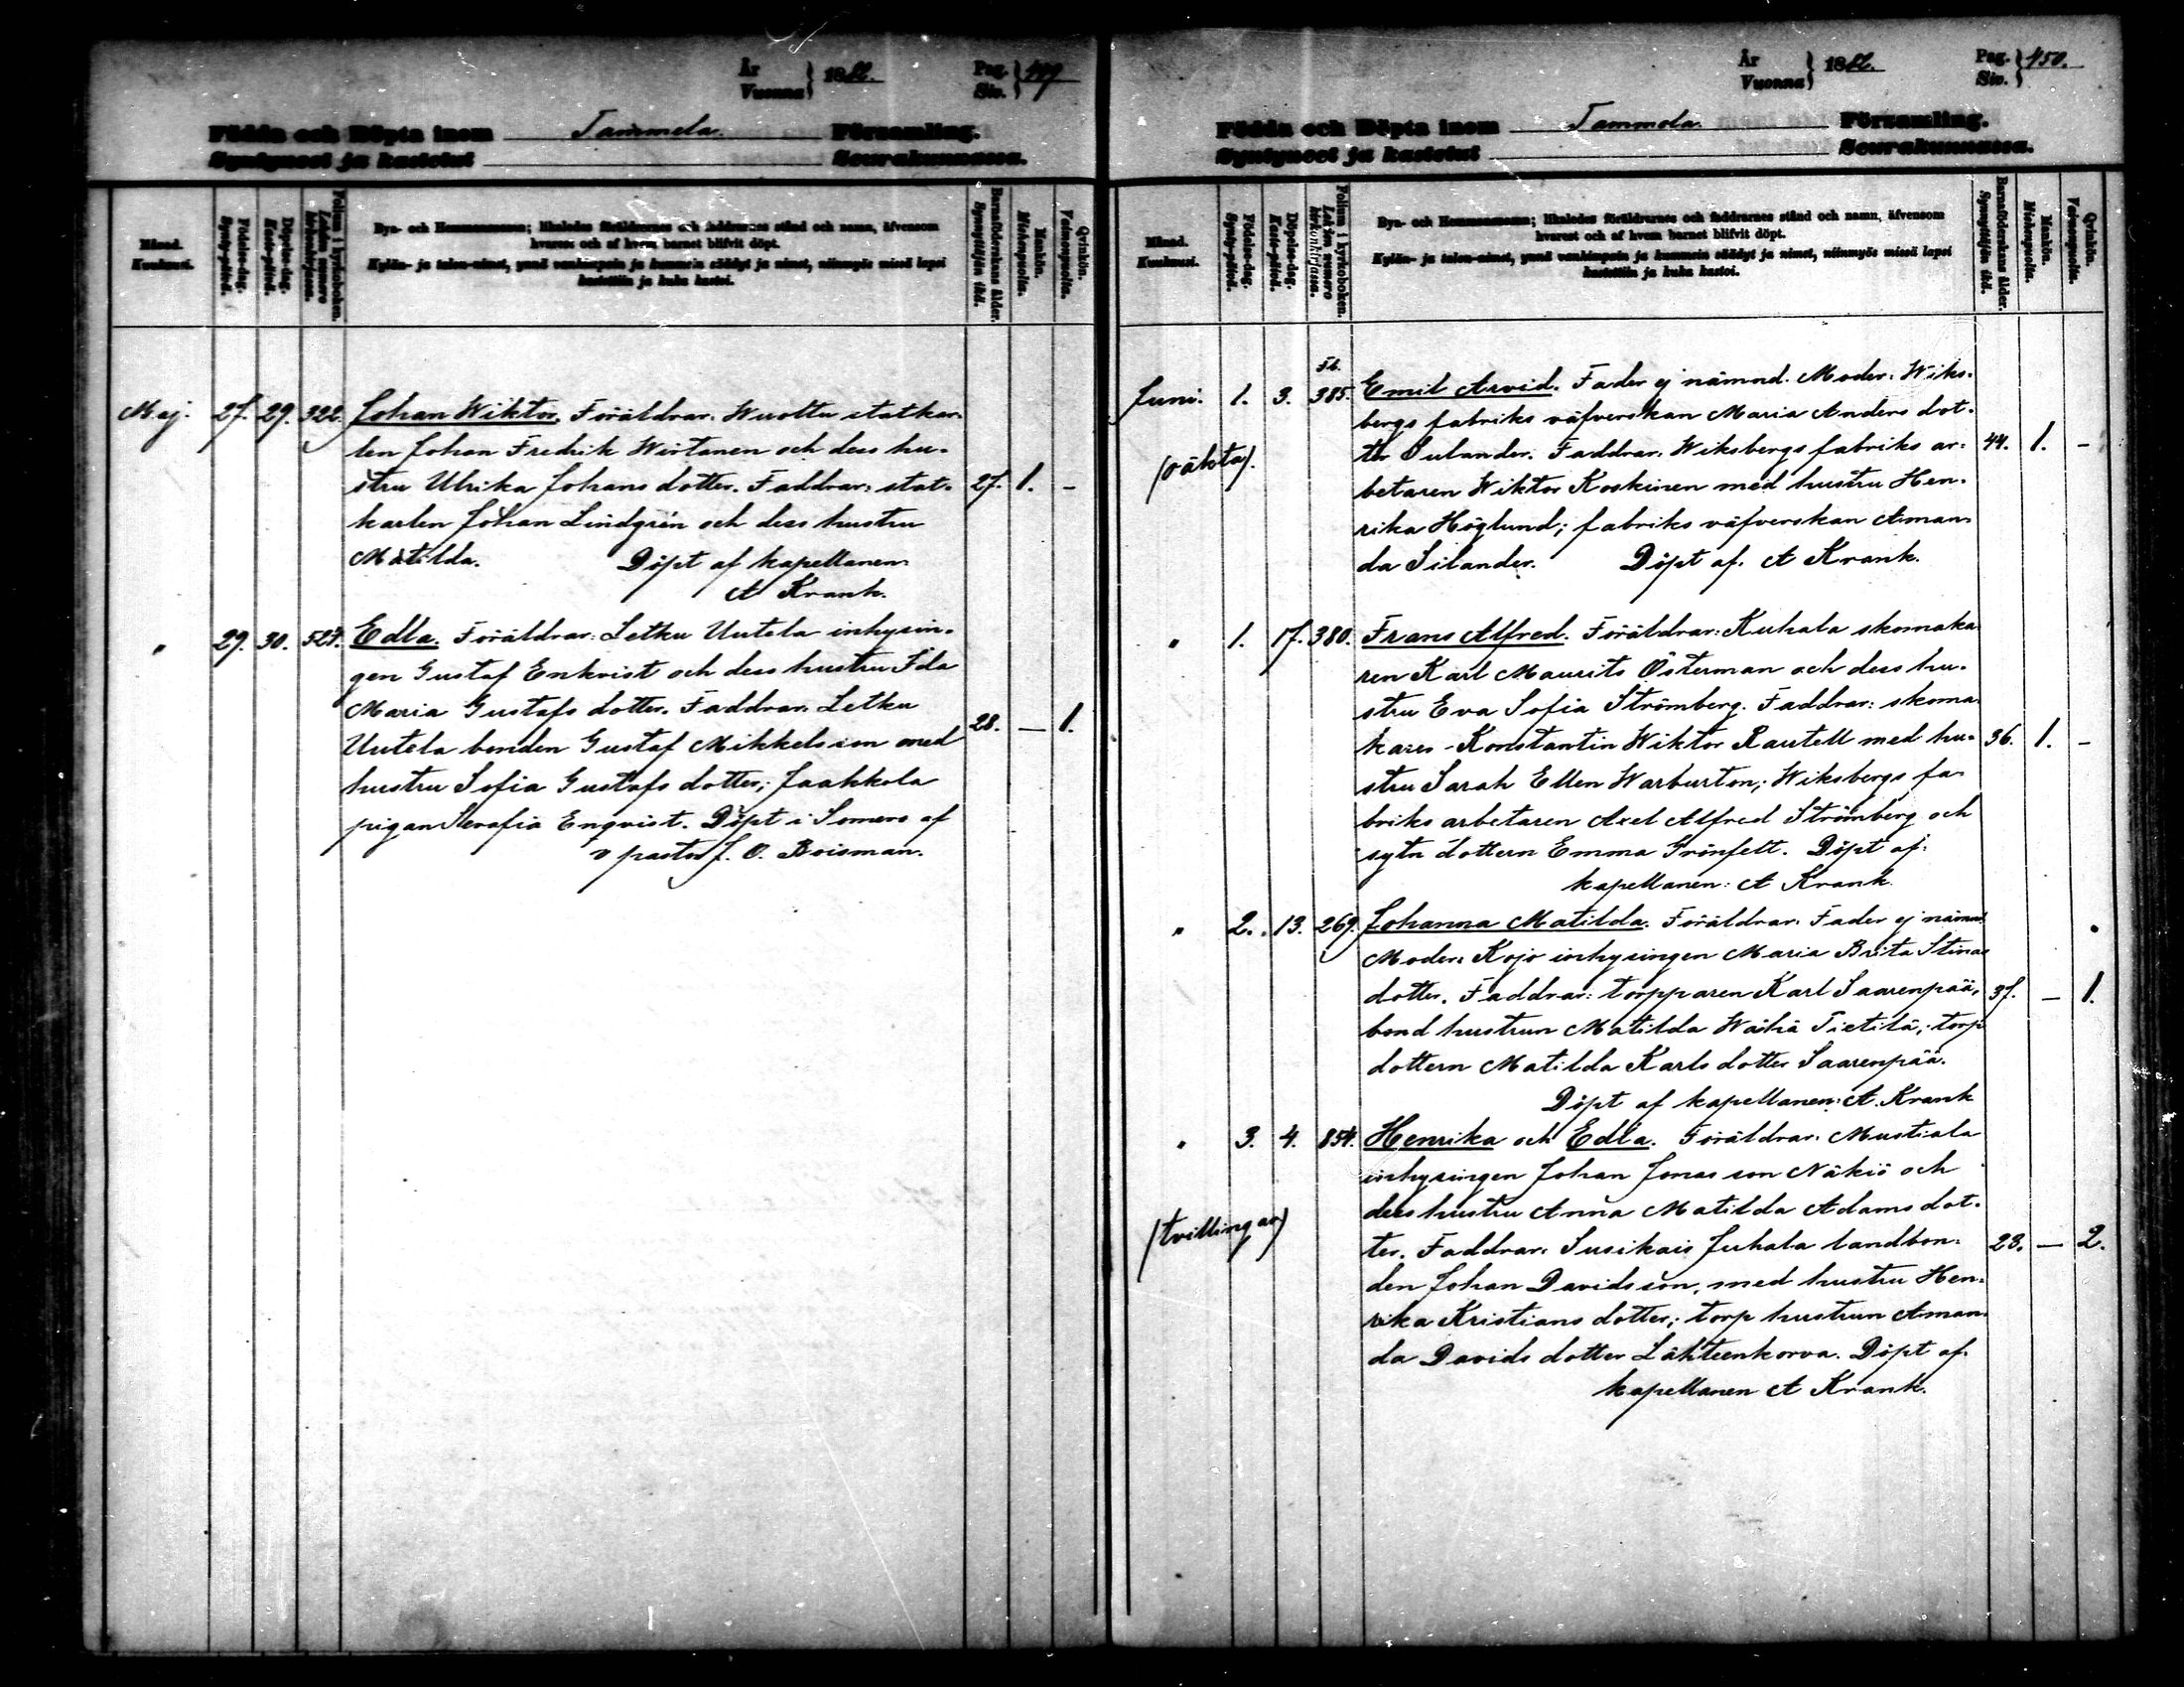 År
Vuonna } 18
Pag.
Siv. }
Födda och Döpta inom Tammela Församling.
Syntyneet ja kastetut Seurakunnassa.
Månad.
Kuukausi.
Födelse-dag.
Synty-päivä.
Döpelse-dag.
Kaste-päivä.
Folium i kyrkoboken.
Lehden numero kirkonkirjassa.
Byn- och Hemmansnamn; likaledes föräldrarnes och faddrarnes stånd och namn, äfvensom
hvarest och af hvem barnet blifvit döpt.
Kylän- ja talon-nimet, ynnä vanhimpain ja kummein säädyt ja nimet, niinmyös missä lapsi
kastettiin ja kuka kastoi.
Barnaföderskans ålder.
Synnyttäjän ikä.
Mankön.
Miehenpuolta.
Qvinkön.
Vaimonpuolta.
Maj. 27. 29. 322. Johan Wiktor. Föräldrar: Wuoltu statkar-
len Johan Fredrik Wirtanen och dess hu-
stru Ulrika Johans dotter. Faddrar: stat- 27. 1. –
karlen Johan Lindgrén och dess hustru
Matilda. Döpt af kapellanen
A Krank.
" 29. 30. 527. Edla. Föräldrar: Letku Uutela inhysin-
gen Gustaf Enkvist och dess hustru Ida
Maria Gustafs dotter. Faddrar: Letku
Uutela bonden Gustaf Mikkelsson med 28. — 1.
hustru Sofia Gustafs dotter; Jaakkola
pigan Serafia Enqvist. Döpt i Somero af
v pastor J. O. Roisman.
År
Vuonna } 18
Pag.
Siv. } 450.
Födda och Döpta inom Tammela Församling.
Syntyneet ja kastetut Seurakunnassa.
Månad.
Kuukausi.
Födelse-dag.
Synty-päivä.
Döpelse-dag.
Kaste-päivä.
Folium i kyrkoboken.
Lehden numero kirkonkirjassa.
Byn- och Hemmansnamn; likaledes föräldrarnes och faddrarnes stånd och namn, äfvensom
hvarest och af hvem barnet blifvit döpt.
Kylän- ja talon-nimet, ynnä vanhimpain ja kummein säädyt ja nimet, niinmyös missä lapsi
kastettiin ja kuka kastoi.
Barnaföderskans ålder.
Synnyttäjän ikä.
Mankön.
Miehenpuolta.
Qvinkön.
Vaimonpuolta.
Juni. 1. 3. 385. Emil Arvid. Fader ej nämnd. Moder: Wiks-
bergs fabriks väfverskan Maria Anders dot-
(oäkta). ter Öulander. Faddrar: Wiksbergs fabriks ar- 44. 1. –
betaren Wiktor Koskinen med hustru Hen-
rika Höglund; fabriks väfverskan Aman-
da Silander. Döpt af. A Krank.
" 1. 17. 380. Frans Alfred. Föräldrar: Kuhala skomaka
ren Karl Maurits Österman och dess hu-
stru Eva Sofia Strömberg. Faddrar: skoma
karen Konstantin Wiktor Rautell med hu- 36. 1. –
stru Sarah Ellen Warburton; Wiksbergs fa-
briks arbetaren Axel Alfred Strömberg och
sytn dottern Emma Grönfelt. Döpt af:
kapellanen: A Krank.
" 2. 13. 269. Johanna Matilda. Föräldrar: Fader ej nämnd
Moder: Kojo inhysingen Maria Brita Stinas
dotter. Faddrar: torpparen Karl Saarenpää, 37. — 1.
bond hustrun Matilda Wähä Tietilä; torp
dottern Matilda Karls dotter Saarenpää.
Döpt af kapellanen: A. Krank
" 3. 4. 854. Henrika och Edla. Föräldrar: Mustiala
inhysingen Johan Jonas son Näkiö och
dess hustru Anna Matilda Adams dot-
(tvillingar) ter. Faddrar: Susikais Juhala landbon- 23. — 2.
den Johan Davidsson, med hustru Hen-
rika Kristians dotter; torp hustrun Aman-
da Davids dotter Lähteenkorva. Döpt af
kapellanen A Krank.